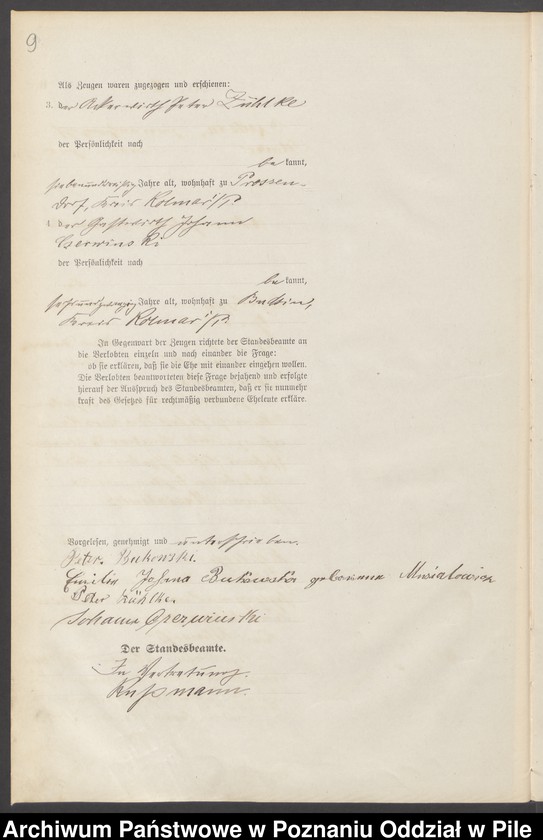 9
Als Zeugen waren zugezogen und erschienen:
3. der Ackerwirth Peter Zühlke
der Persönlichkeit nach
be kannt,
siebenunddreißig Jahre alt, wohnhaft zu Prossen-
dorf, Kreis Kolmar i/P.
4. der Gastwirth Johann
Czerwinski
der Persönlichkeit nach
be kannt,
Jahre alt, wohnhaft zu Budsin,
Kreis Kolmar i/P.
In Gegenwart der Zeugen richtete der Standesbeamte an
die Verlobten einzeln und nach einander die Frage:
ob sie erklären, daß sie die Ehe mit einander eingehen wollen.
Die Verlobten beantworteten diese Frage bejahend und erfolgte
hierauf der Ausspruch des Standesbeamten, daß er sie nunmehr
kraft des Gesetzes für rechtmäßig verbundene Eheleute erkläre.
Vorgelesen, genehmigt und unterschrieben.
Peter. Bukowski.
Emilie Bukowska geborenne Musialowicz
Peter Zühlke.
Johann Czerwinski
Der Standesbeamte.
In Vertretung.
Rußmann.
Archiwum Państwowe w Poznaniu Oddział w Pile